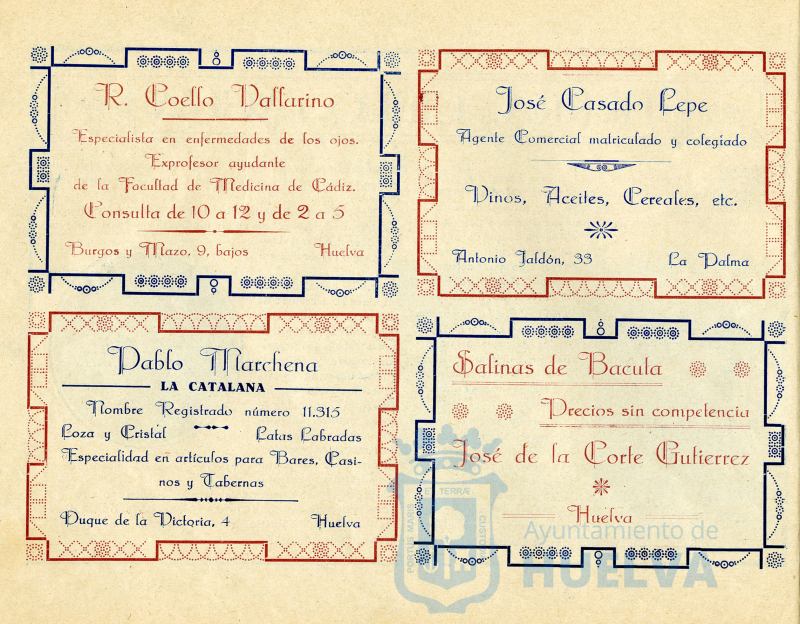 R. Coello Vallarino
Especialista en enfermedades de los ojos.
Exprofesor ayudante
de la Facultad de Medicina de Cádiz.
Consulta de 10 a 12 y de 2 a 5
Burgos y Mazo, 9, bajos Huelva
José Casado Lepe
Agente Comercial matriculado y colegiado
Vinos, Aceites, Cereales, etc.
Antonio Jaldón, 33 La Palma
Pablo Marchena
LA CATALANA
Nombre Registrado número 11.315
Loza y Cristal Latas Labradas
Especialidad en artículos para Bares, Casi-
nos y Tabernas
Duque de la Victoria, 4 Huelva
Salinas de Bacuta
Precios sin competencia
José de la Corte Gutierrez
Huelva
Ayuntamiento de
HUELVA